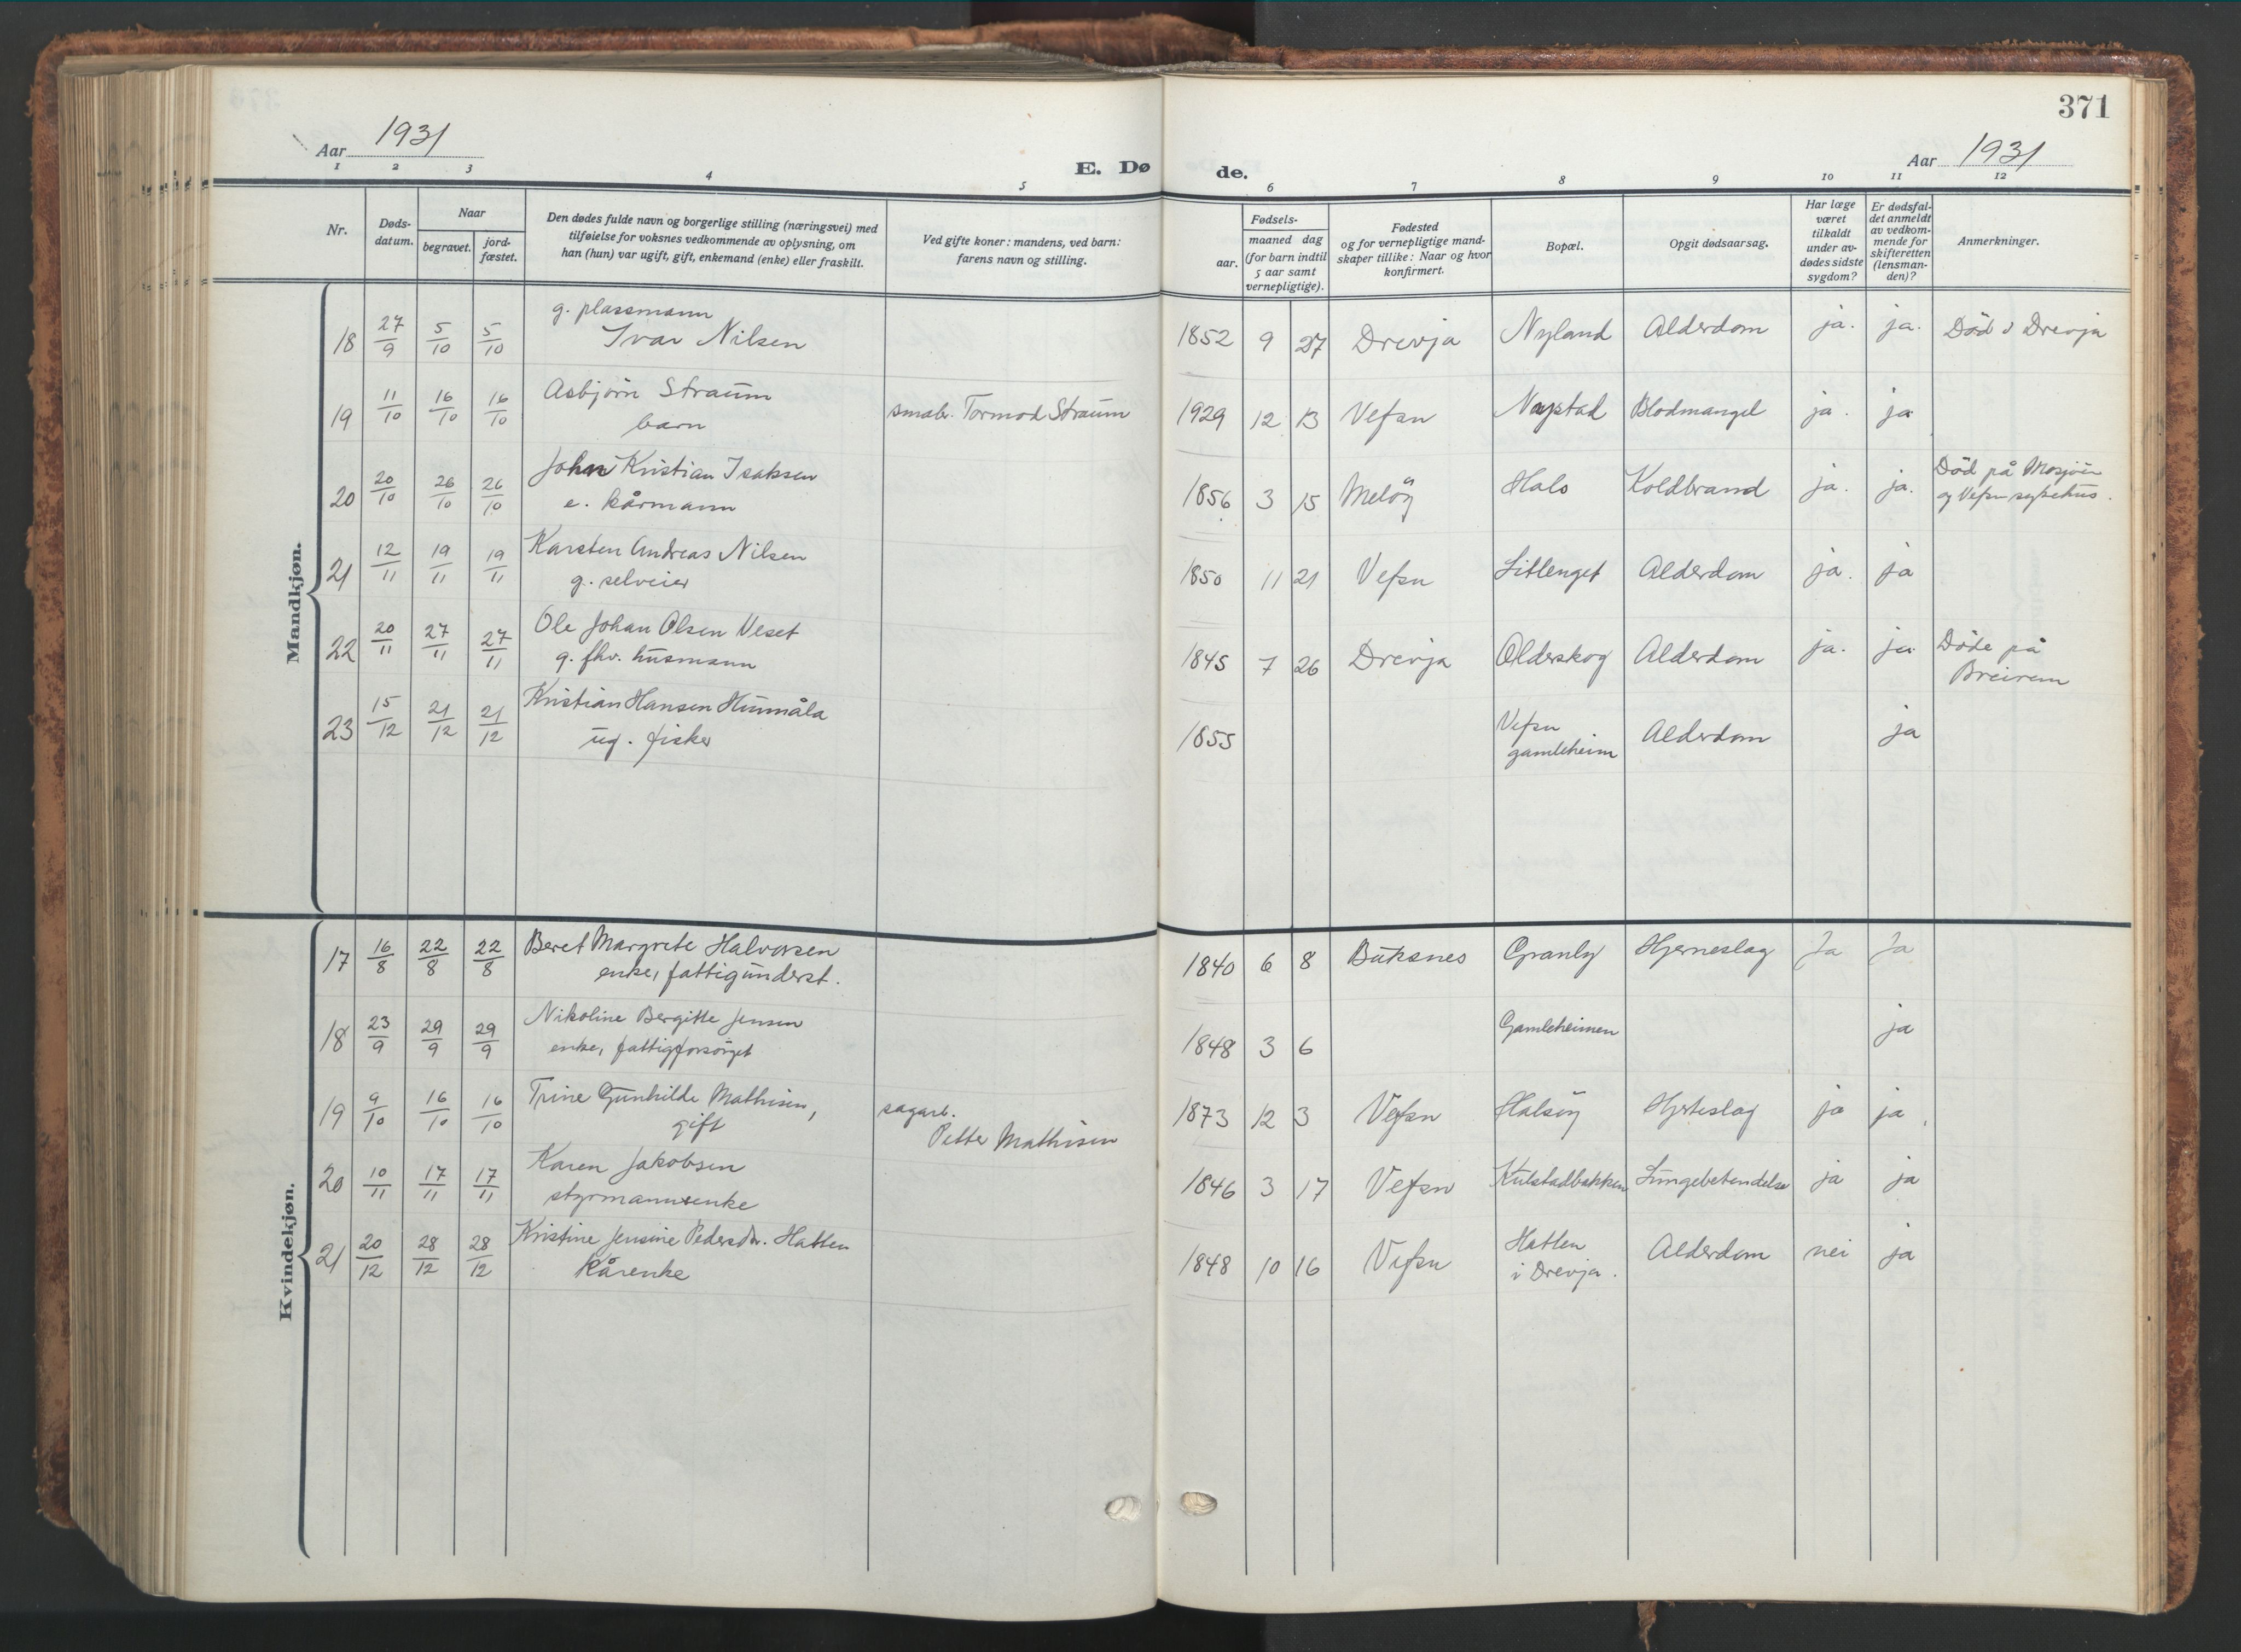 371
Aar 1931
E. Døde.
Aar 1931
1 2 3 4 5 6 7 8 9 10 11 12
Nr.
Døds-datum.
Naar
begravet.
jord-fæstet.
Den dødes fulde navn og borgerlige stilling (næringsvei) med
tilføielse for voksnes vedkommende av oplysning, om
han (hun) var ugift, gift, enkemand (enke) eller fraskilt.
Ved gifte koner: mandens, ved barn:
farens navn og stilling.
Fødsels-
aar.
maaned dag
(for barn indtil
5 aar samt
vernepligtige).
Fødested
og for vernepligtige mand-
skaper tillike: Naar og hvor
konfirmert.
Bopæl.
Opgit dødsaarsag.
Har læge
været
tilkaldt
under av-
dødes sidste
sygdom?
Er dødsfal-
det anmeldt
av vedkom-
mende for
skifteretten
(lensman-
den)?
Anmerkninger.
Mandkjøn.
g. plassmann
18 27/9 5/10 5/10 Ivar Nilsen 1852 9 27 Drevja Nyland Alderdom ja. ja. Död i Drevja
19 11/10 16/10 16/10 Asbjörn Straum smabr. Tormod Straum 1929 12 13 Vefsn Nystad Blodmangel ja. ja
barn
20 20/10 26/10 26/10 John Kristian Isaksen 1856 3 15 Melöy Hals Koldbrand ja. ja. Död på Mosjöen
e. kårmann og Vefsn sykehus.
21 12/11 19/11 19/11 Karsten Andreas Nilsen 1850 11 21 Vefsn Litlenget Alderdom ja. ja
g. selveier
22 20/11 27/11 27/11 Ole Johan Olsen Veset 1845 7 26 Drevja Olderskog Alderdom ja. ja Döde på
g. fhv. husmann Breirem
23 15/12 21/12 21/12 Kristian Hansen Hunnåla 1855 Vefsn Alderdom ja
ug. fisker gamleheim
Kvindekjøn.
17 16/8 22/8 22/8 Beret Margrete Halvorsen 1840 6 8 Buksnes Granly Hjerneslag Ja Ja
enke, fattigunderst.
18 23/9 29/9 29/9 Nikoline Bergitte Jensen 1848 3 6 Gamleheimen ja
enke, fattigforsörget
19 9/10 16/10 16/10 Trine Gunhilde Mathisen, sagarb. 1873 12 3 Vefsn Halsöy Hjerteslag ja ja
gift Petter Mathisen
20 10/11 17/11 17/11 Karen Jakobsen 1846 3 17 Vefsn Kulstadbakken Lungebetendelse ja ja
styrmannsenke
21 20/12 28/12 28/12 Kristine Jensine Pedersdr. Hatten 1848 10 16 Vefsn Hatten Alderdom nei ja
Kårenke i Drevja.